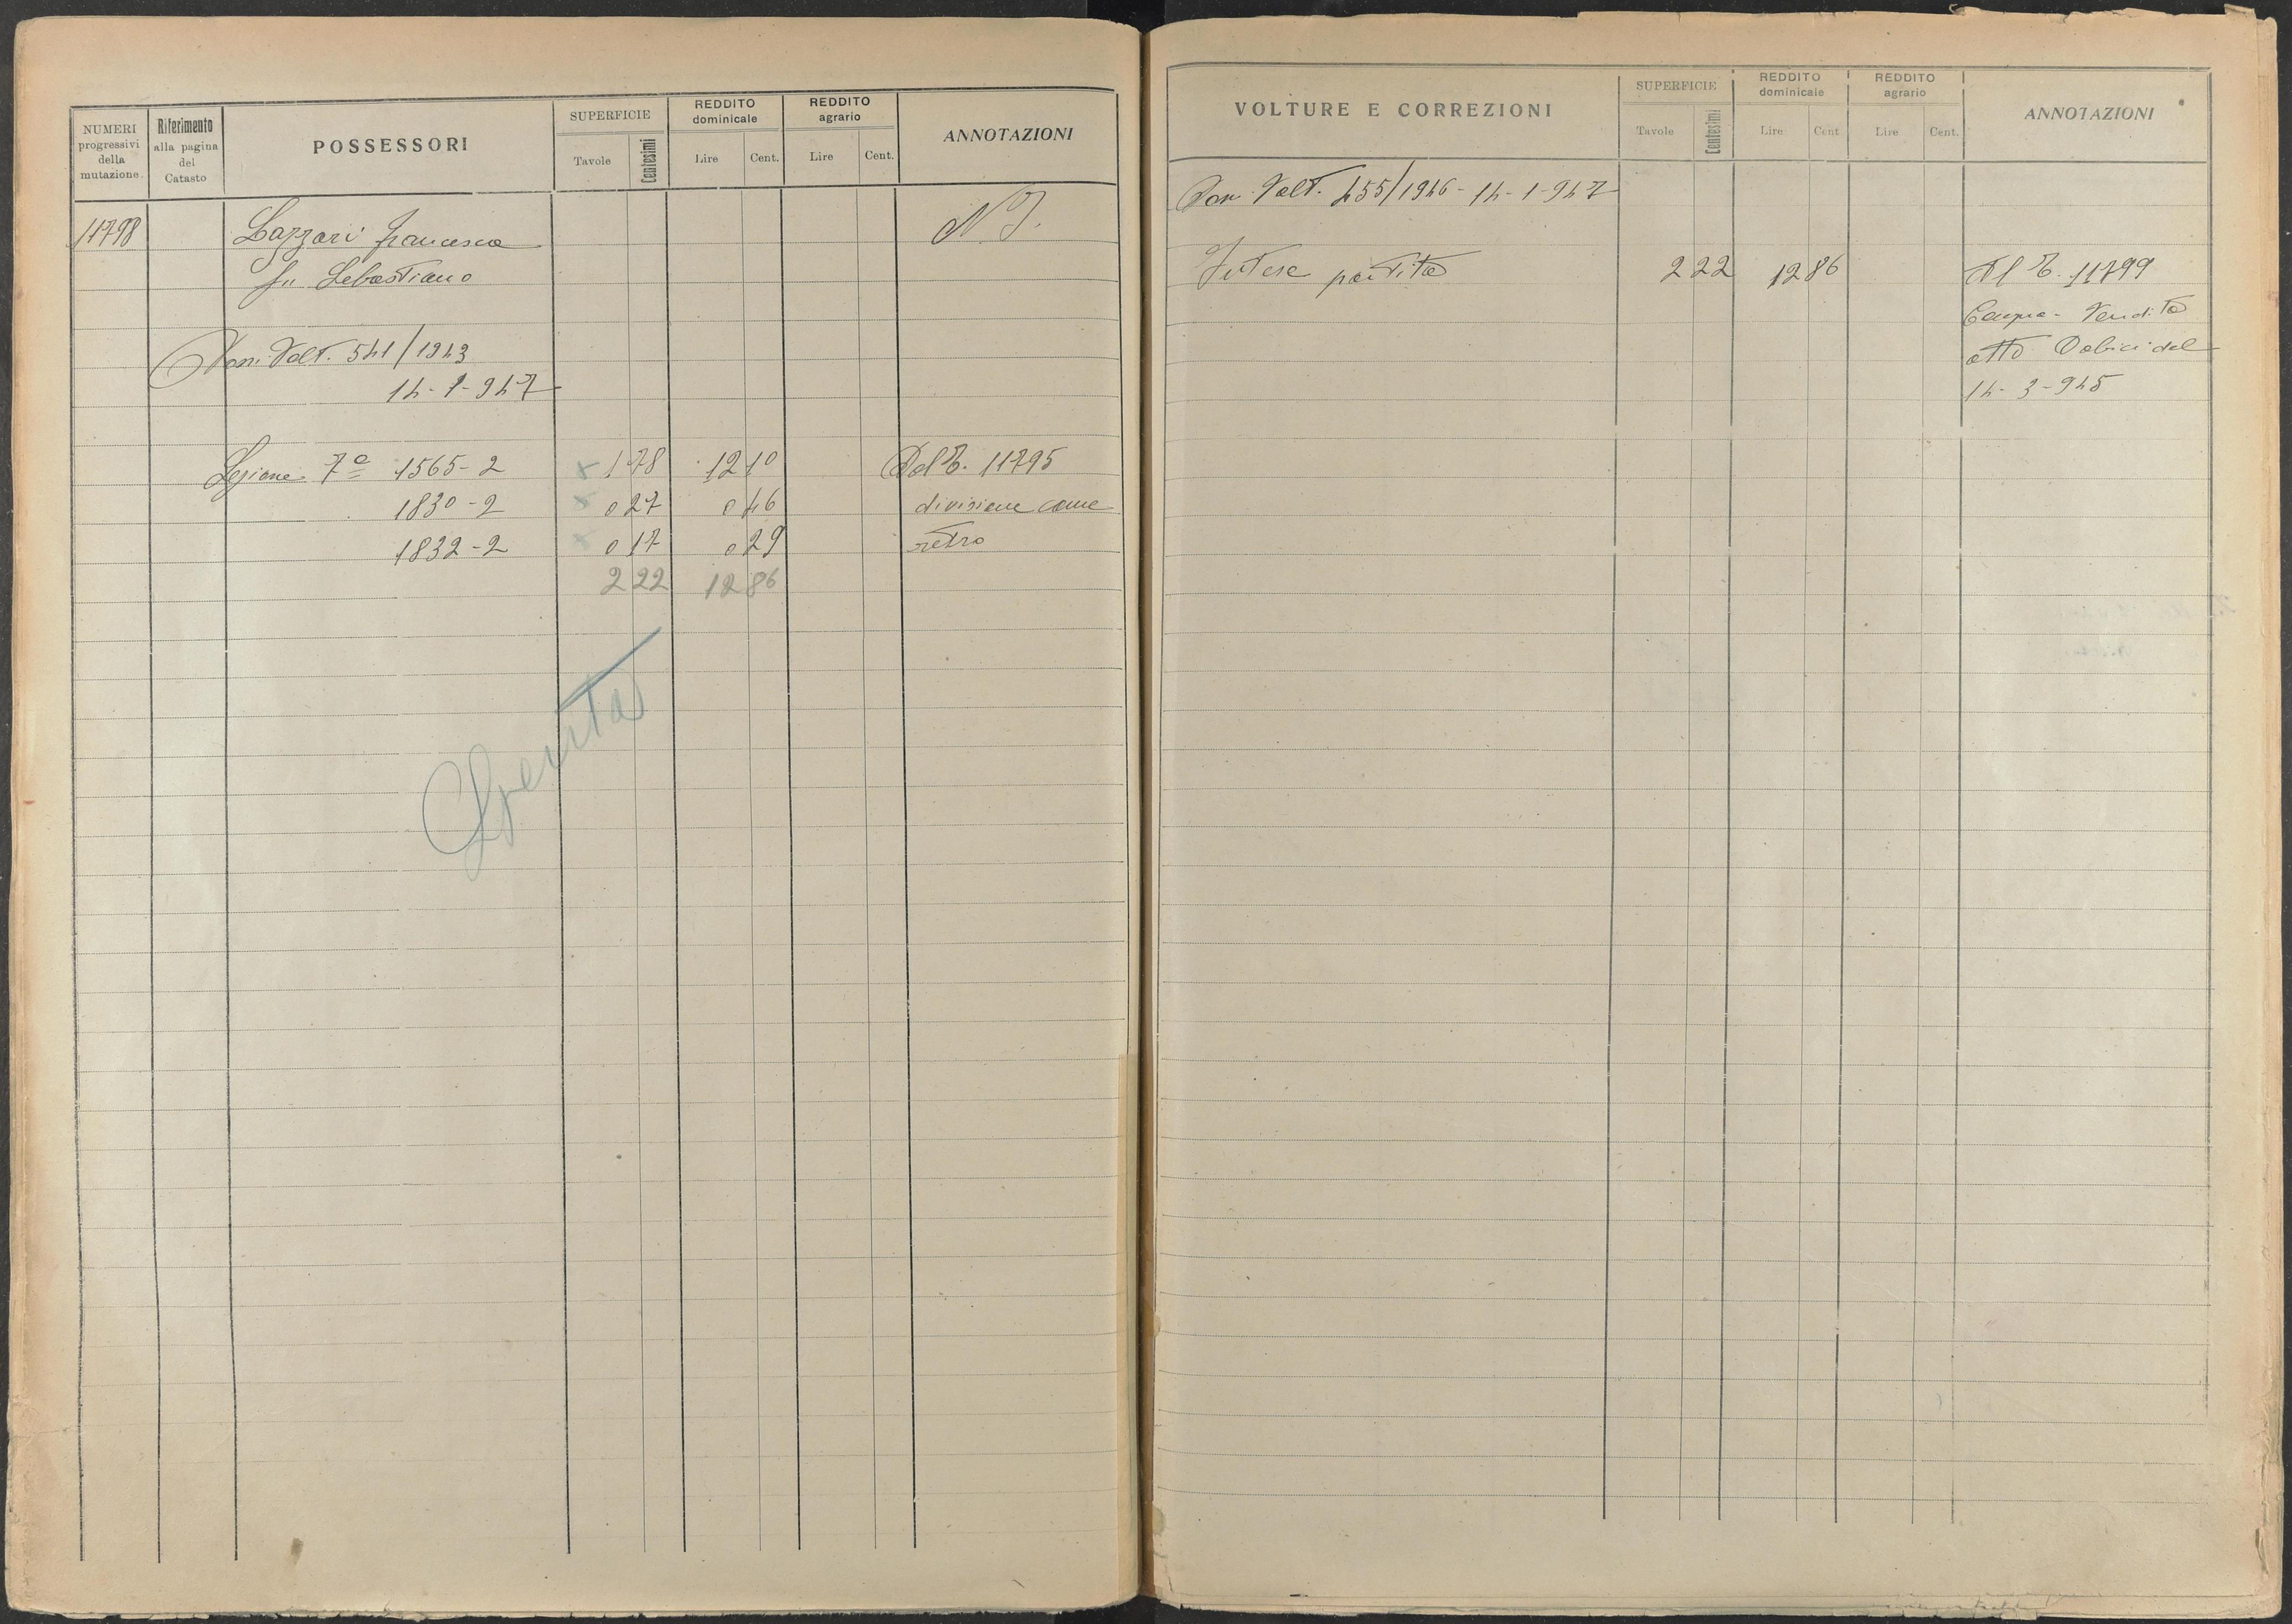 NUMERI progressivi della mutazione.
Riferimento alla pagina del Catasto
POSSESSORI
SUPERFICIE
Tavole Centesimi
REDDITO dominicale
Lire Cent.
REDDITO agrario
Lire Cent.
ANNOTAZIONI
11798 Lazzari Francesca
fu Sebastiano
Volt. 541/1943
14-1-947
Sezione 7ª 1565-2 1 78 12 10 Dal N. 11795
1830-2 0 27 0 46 divisione come
1832-2 0 17 0 29 retro
2 22 12 86
Spenta
VOLTURE E CORREZIONI
SUPERFICIE
Tavole Centesimi
REDDITO dominicale
Lire Cent
REDDITO agrario
Lire Cent.
ANNOTAZIONI
Volt. 455/1946 - 14-1-947
Intera partita 2 22 12 86 Al N. 11799
Compra-Vendita
atto del
14-3-945